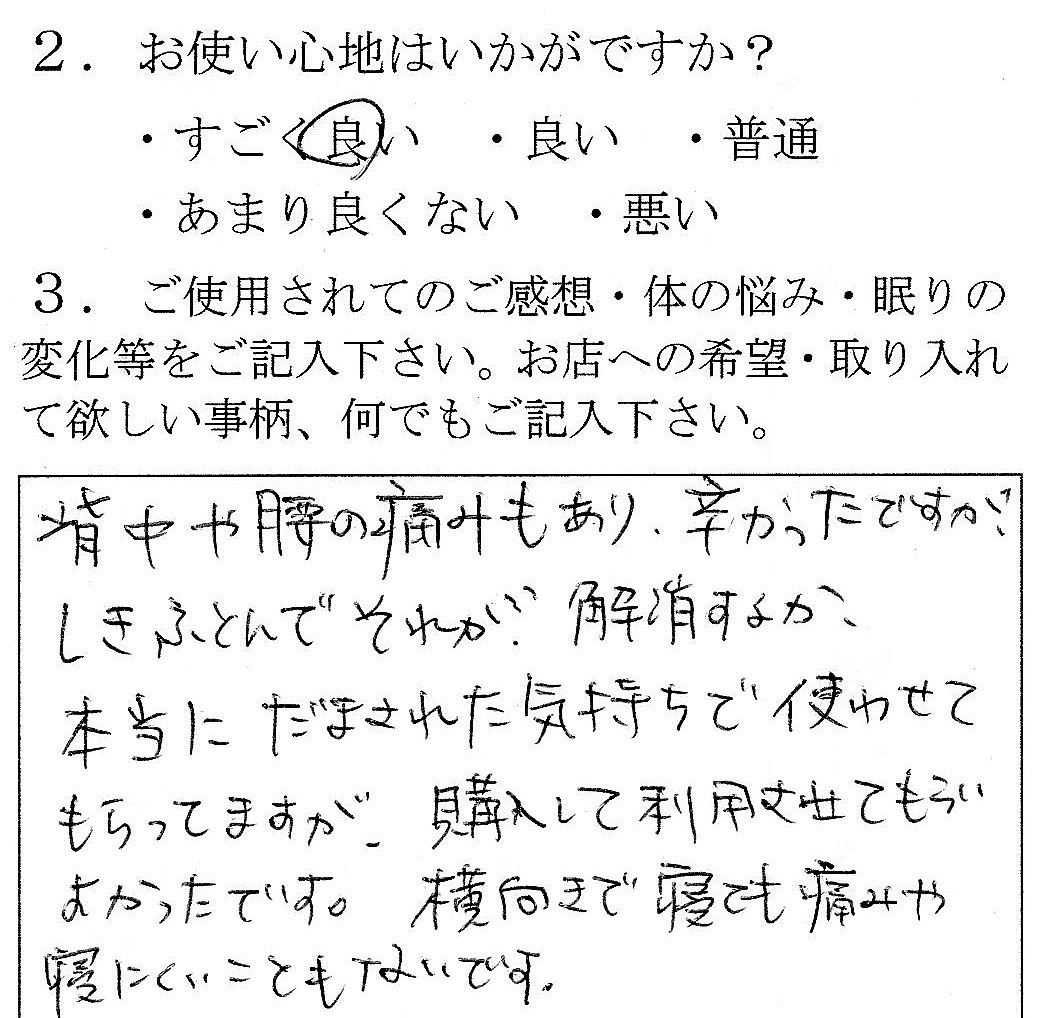 2．お使い心地はいかがですか？
・すごく良い ・良い ・普通
・あまり良くない ・悪い
3．ご使用されてのご感想・体の悩み・眠りの
変化等をご記入下さい。お店への希望・取り入れ
て欲しい事柄、何でもご記入下さい。
背中や腰の痛みもあり、辛かったですが、
しきふとんでそれが解消するか、
本当にだまされた気持ちで使わせて
もらってますが、購入して利用させてもらい
よかったです。横向きで寝ても痛みや
寝にくいこともないです。